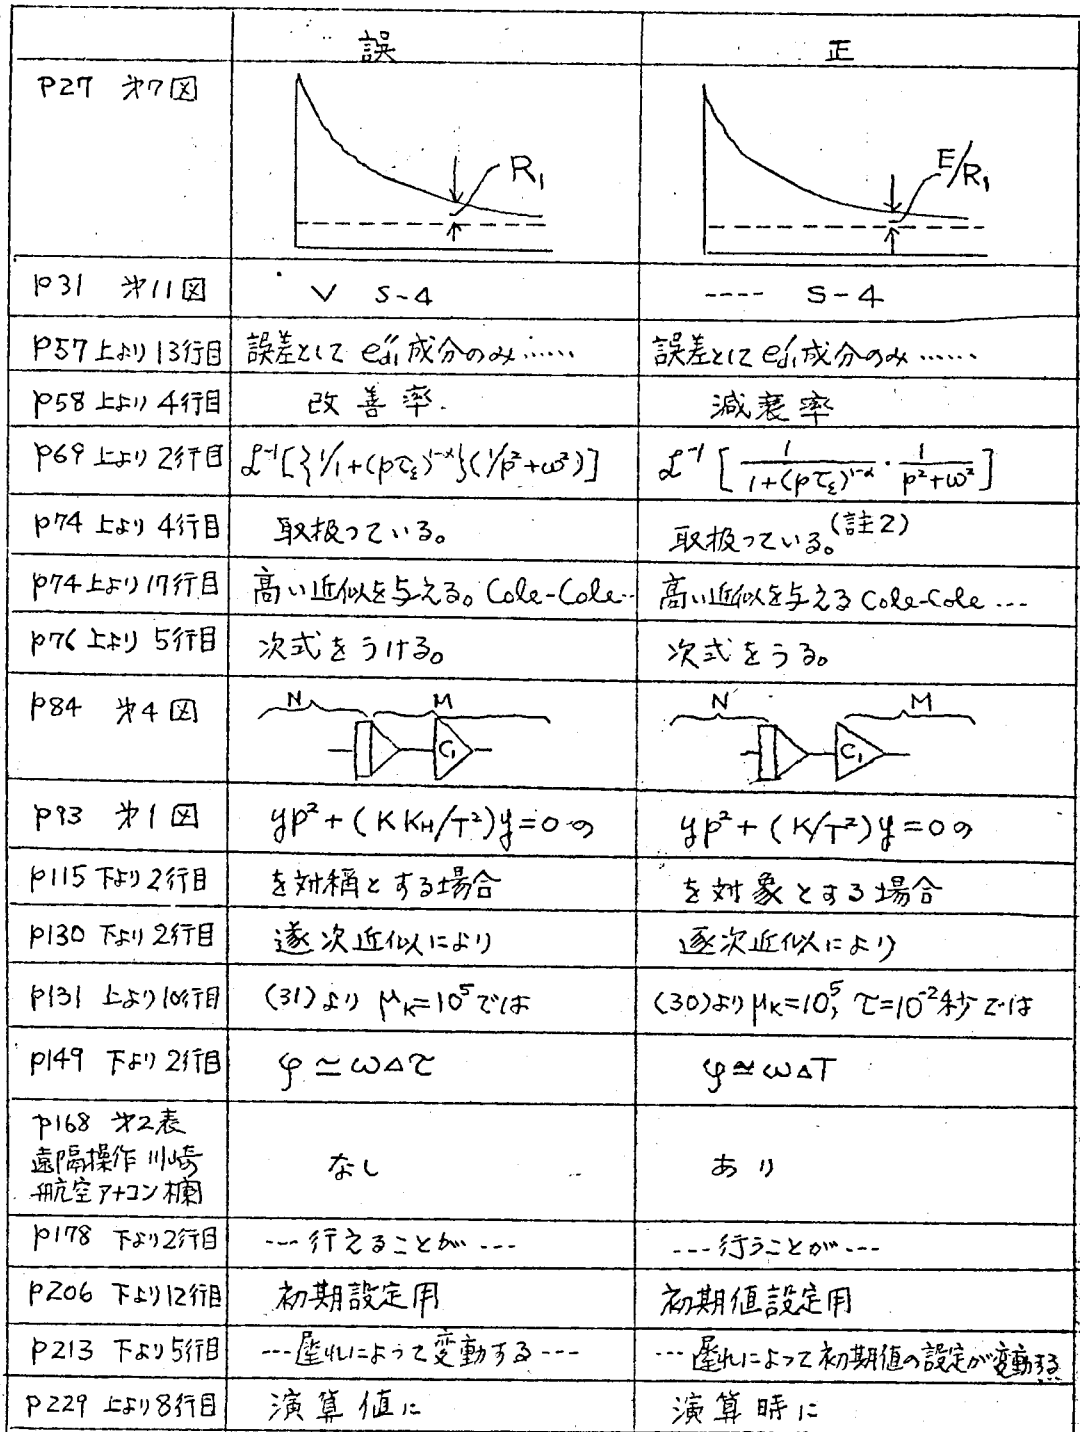 誤 正
P27 才7図 R₁ E/R₁
P31 才11図 ∨ S-4 ---- S-4
P57 上より13行目 誤差として e″d1 成分のみ…… 誤差として e′d1 成分のみ……
P58 上より 4行目 改善率. 減衰率
P69 上より 2行目 ℒ⁻¹[{1/1+(pτε)^1-α}(1/p²+ω²)] ℒ⁻¹[1/1+(pτε)^1-α · 1/p²+ω²]
P74 上より 4行目 取扱っている。 取扱っている。(註2)
P74 上より17行目 高い近似を与える。Cole-Cole… 高い近似を与える Cole-Cole …
P76 上より 5行目 次式をうける。 次式をうる。
P84 才4図 N M C₁ N M C₁
P93 才1図 yp²+(K KH/T²)y=0 の yp²+(K/T²)y=0 の
P115 下より2行目 を対稱とする場合 を対象とする場合
P130 下より2行目 遂次近似により 逐次近似により
P131 上より10行目 (31)より μK=10⁵では (30)より μK=10⁵, τ=10⁻²秒では
P149 下より2行目 φ≃ωΔτ φ≃ωΔT
P168 才2表
遠隔操作 川崎 なし あり
航空アナコン欄
P178 下より2行目 --- 行えることが --- --- 行うことが ---
P206 下より12行目 初期設定用 初期値設定用
P213 下より5行目 ---によって変動する --- ---によって初期値の設定が変動する
P229 上より8行目 演算値に 演算時に